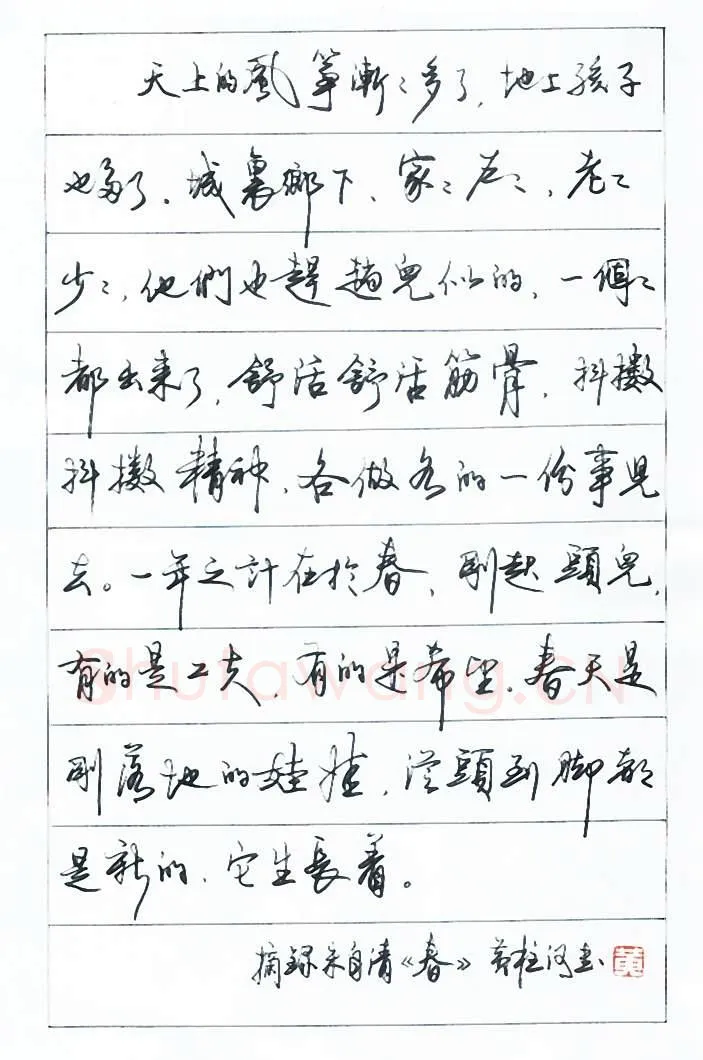 天上的風箏漸〻多了，地上孩子
也多了。城裏鄉下、家〻户〻，老〻
少〻，他們也趕趟兒似的，一個〻
都出來了，舒活舒活筋骨，抖擻
抖擻精神，各做各的一份事兒
去。一年之計在於春，剛起頭兒，
有的是工夫，有的是希望。春天是
剛落地的娃娃，從頭到脚都
是新的，它生長着。
摘録朱自清《春》 黄柱河書 黄
Shufawang.CN